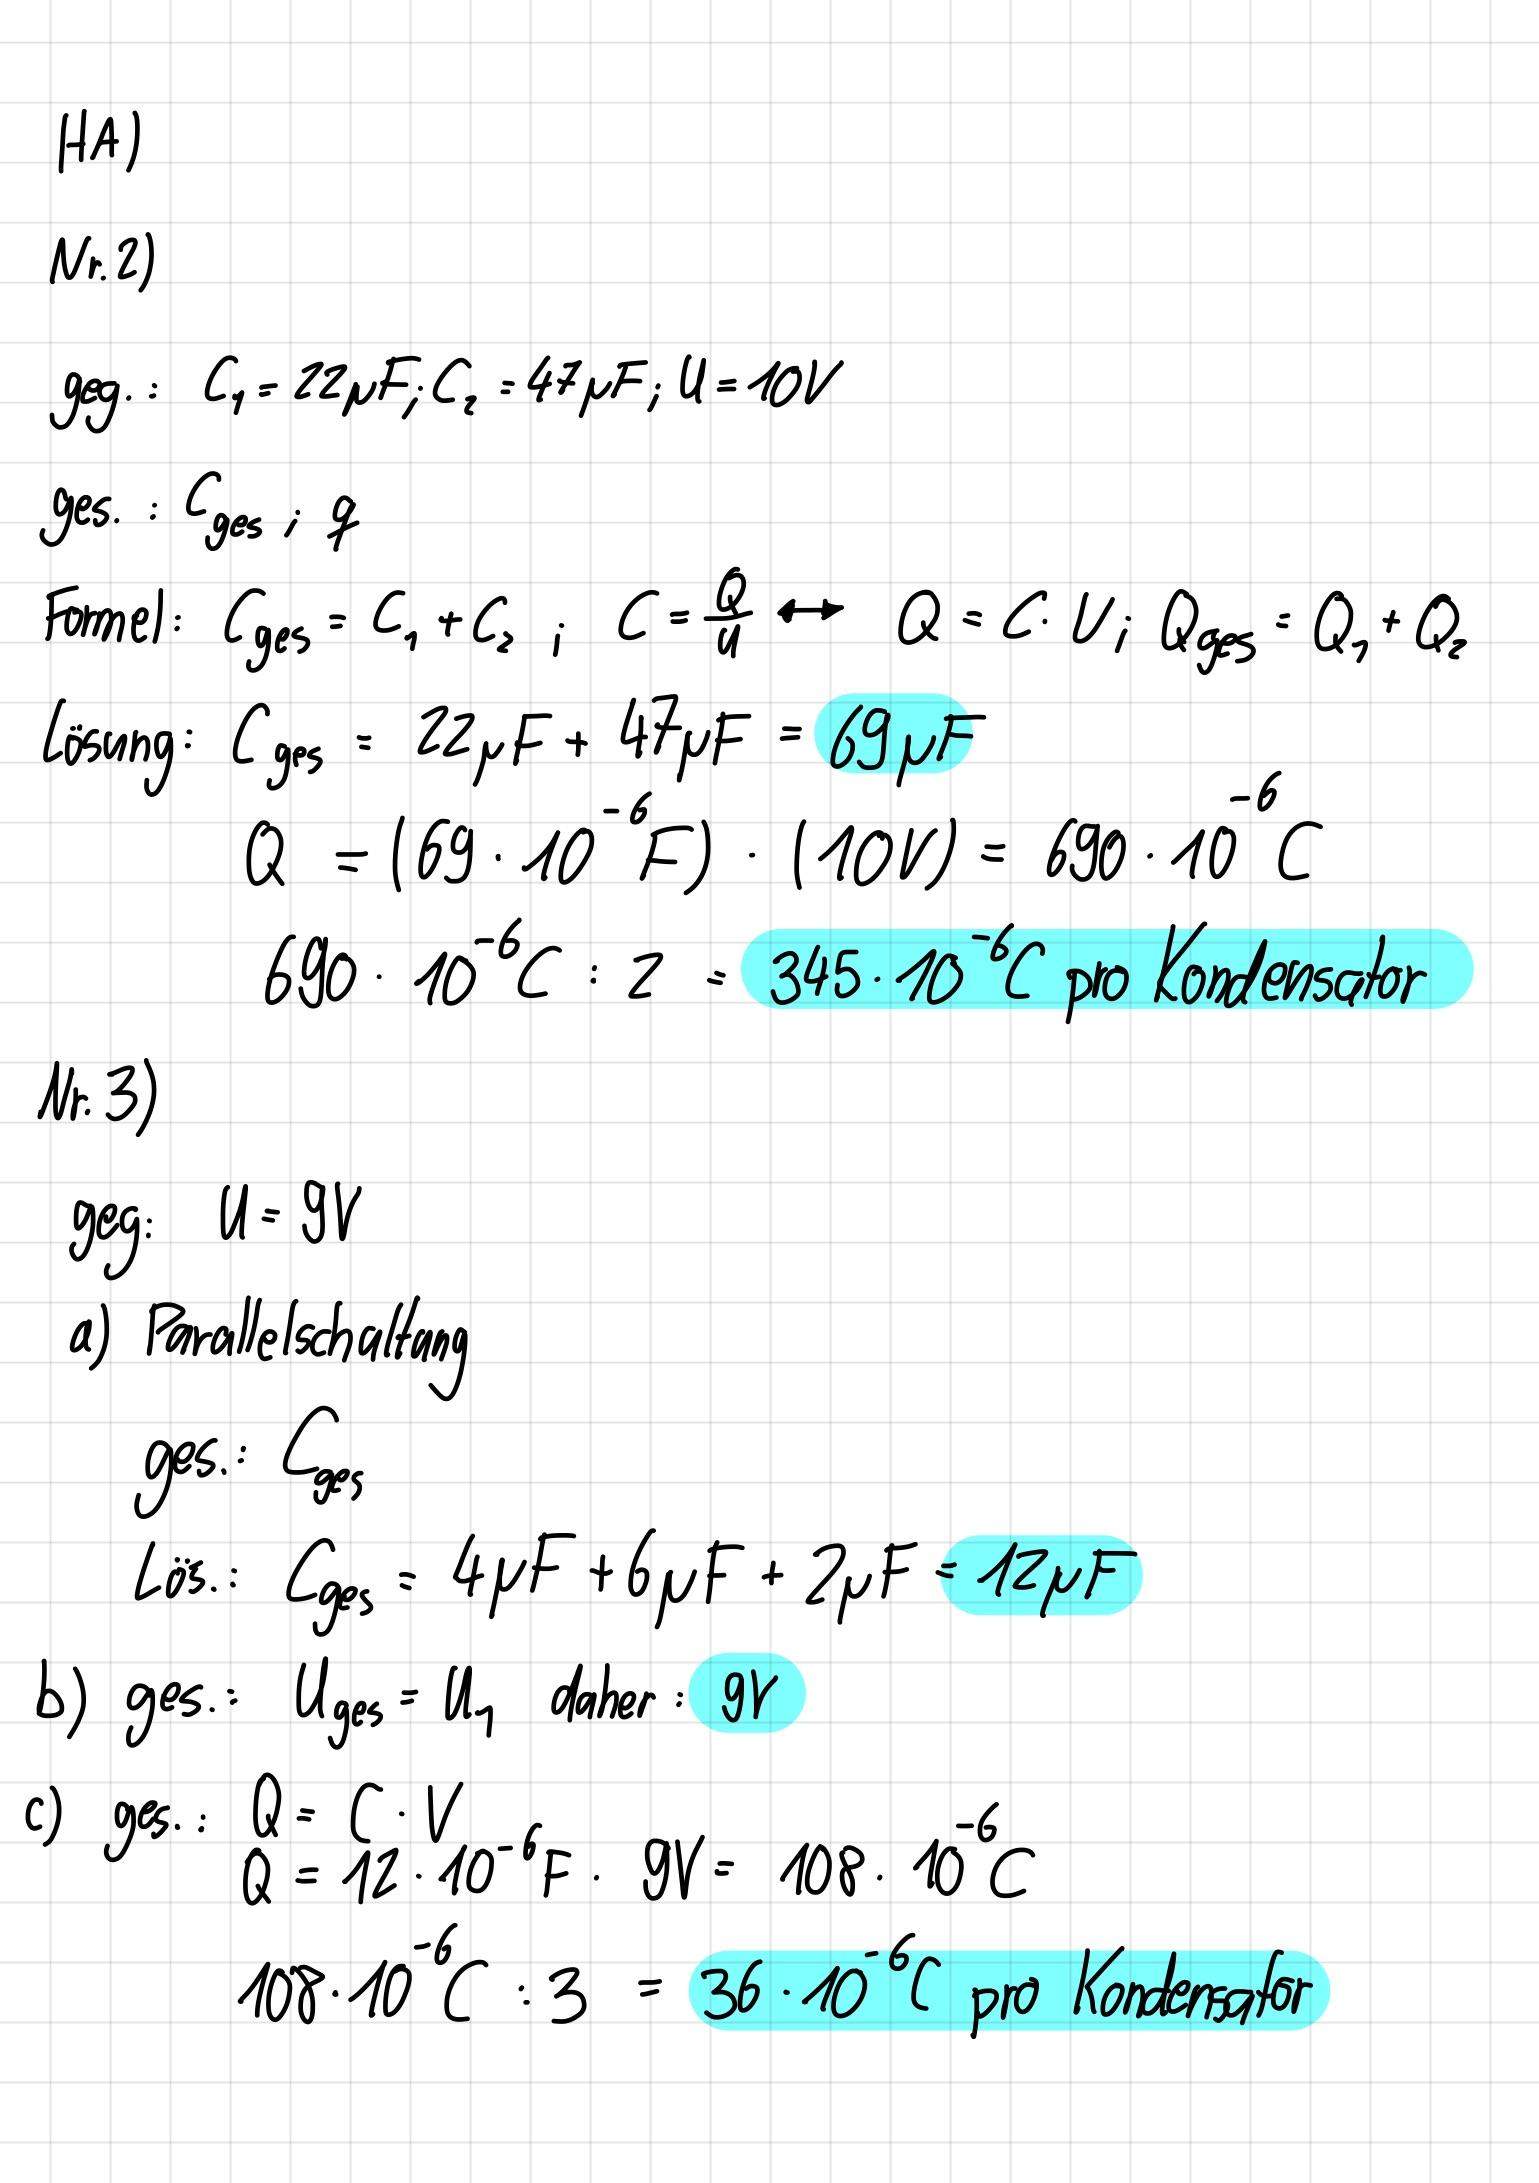 HA)
Nr. 2)
geg. : C₁ = 22µF; C₂ = 47µF; U = 10V
ges. : C_ges ; q
Formel: C_ges = C₁ + C₂ ; C = Q/U ↔ Q = C · V; Q_ges = Q₁ + Q₂
Lösung: C_ges = 22µF + 47µF = 69µF
Q = (69 · 10⁻⁶F) · (10V) = 690 · 10⁻⁶C
690 · 10⁻⁶C : 2 = 345 · 10⁻⁶C pro Kondensator
Nr. 3)
geg: U = 9V
a) Parallelschaltung
ges.: C_ges
Lös.: C_ges = 4µF + 6µF + 2µF = 12µF
b) ges.: U_ges = U₁ daher: 9V
c) ges.: Q = C · V
Q = 12 · 10⁻⁶F · 9V = 108 · 10⁻⁶C
108 · 10⁻⁶C : 3 = 36 · 10⁻⁶C pro Kondensator